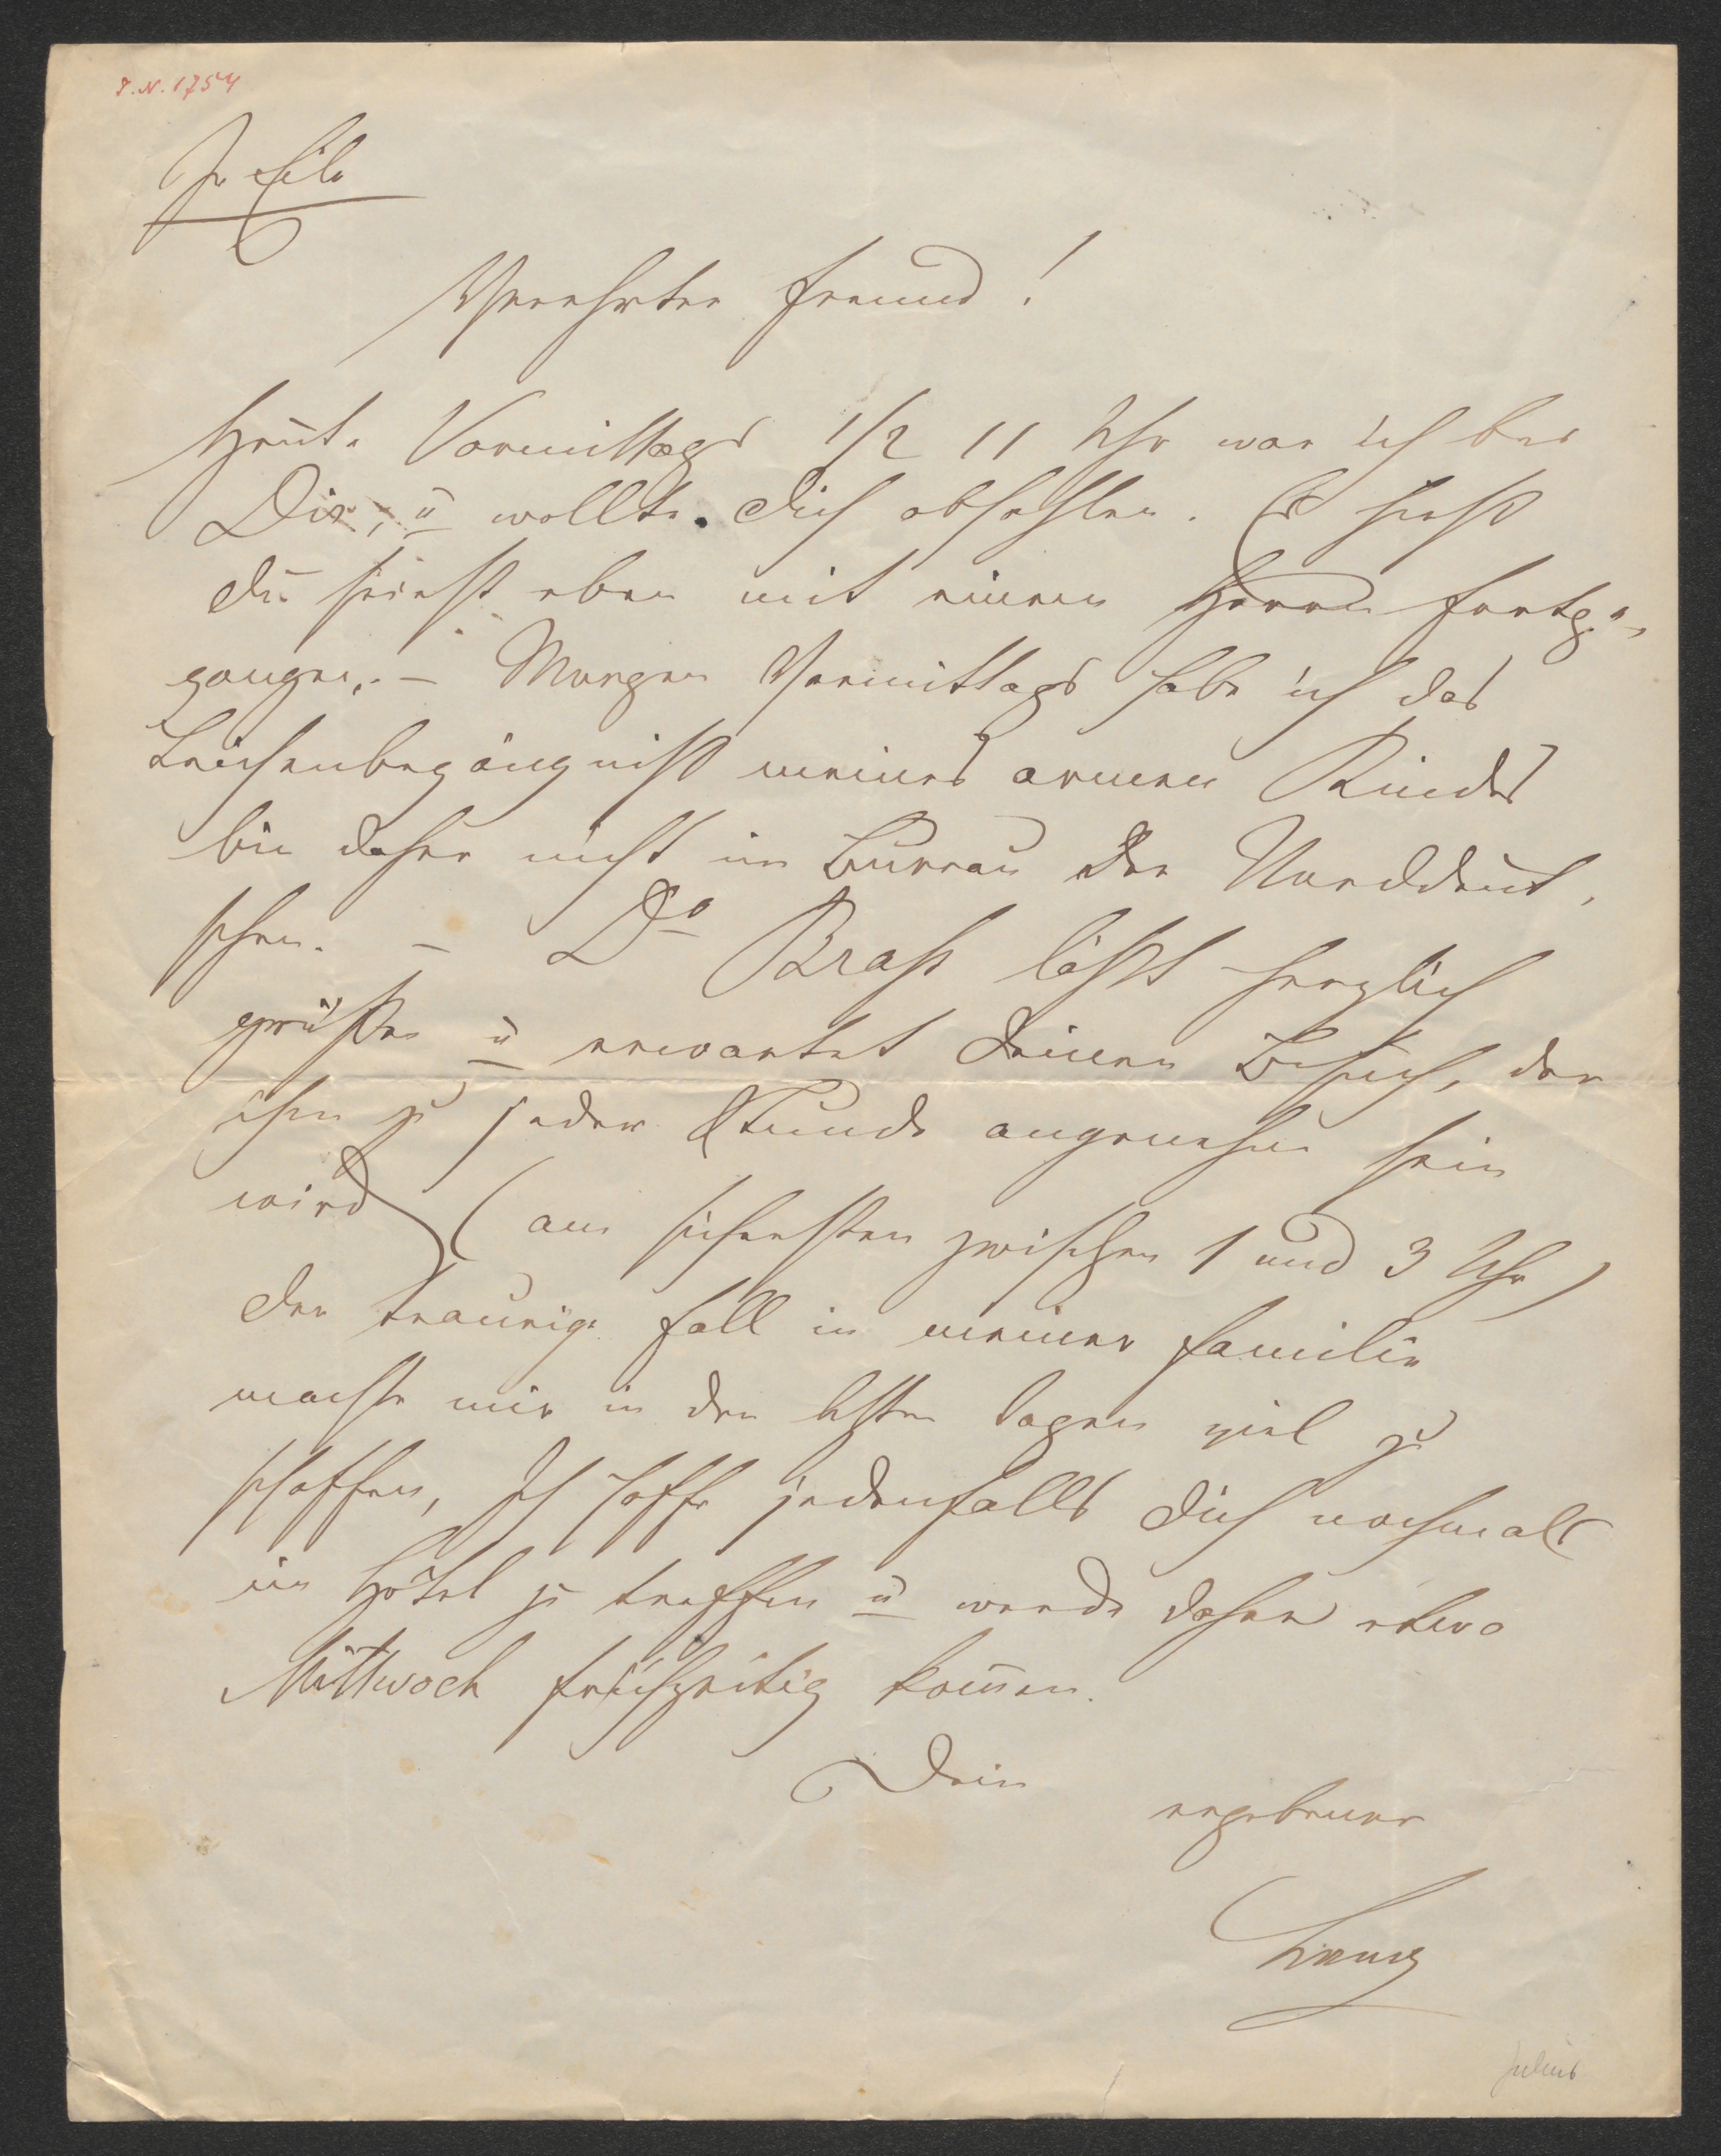 I.N. 1754
In Eile
Verehrter Freund!
Heute Vormittags 1/2 11 Uhr war ich bei
Dir, u wollte Dich abhohlen. Es hieß
Du seiest eben mit einem Herrn fortge-
gangen. – Morgen Vormittags habe ich das
Leichenbegängniß meines armen Kindes
bin daher nicht im Bureau der Norddeut,
schen. – Dr Brass läßt herzlich
grüßen u erwartet Deinen Besuch, der
ihm zu jeder Stunde angenehm sein
wird (am sichersten zwischen 1 und 3 Uhr)
Der traurige Fall in meiner Familie
machte mir in den letzten Tagen viel zu
schaffen, Ich hoffe jedenfalls Dich nochmals
im Hôtel zu treffen u werde daher etwa
Mittwoch frühzeitig kom̅en.
Dein
ergebener
Lang
Julius